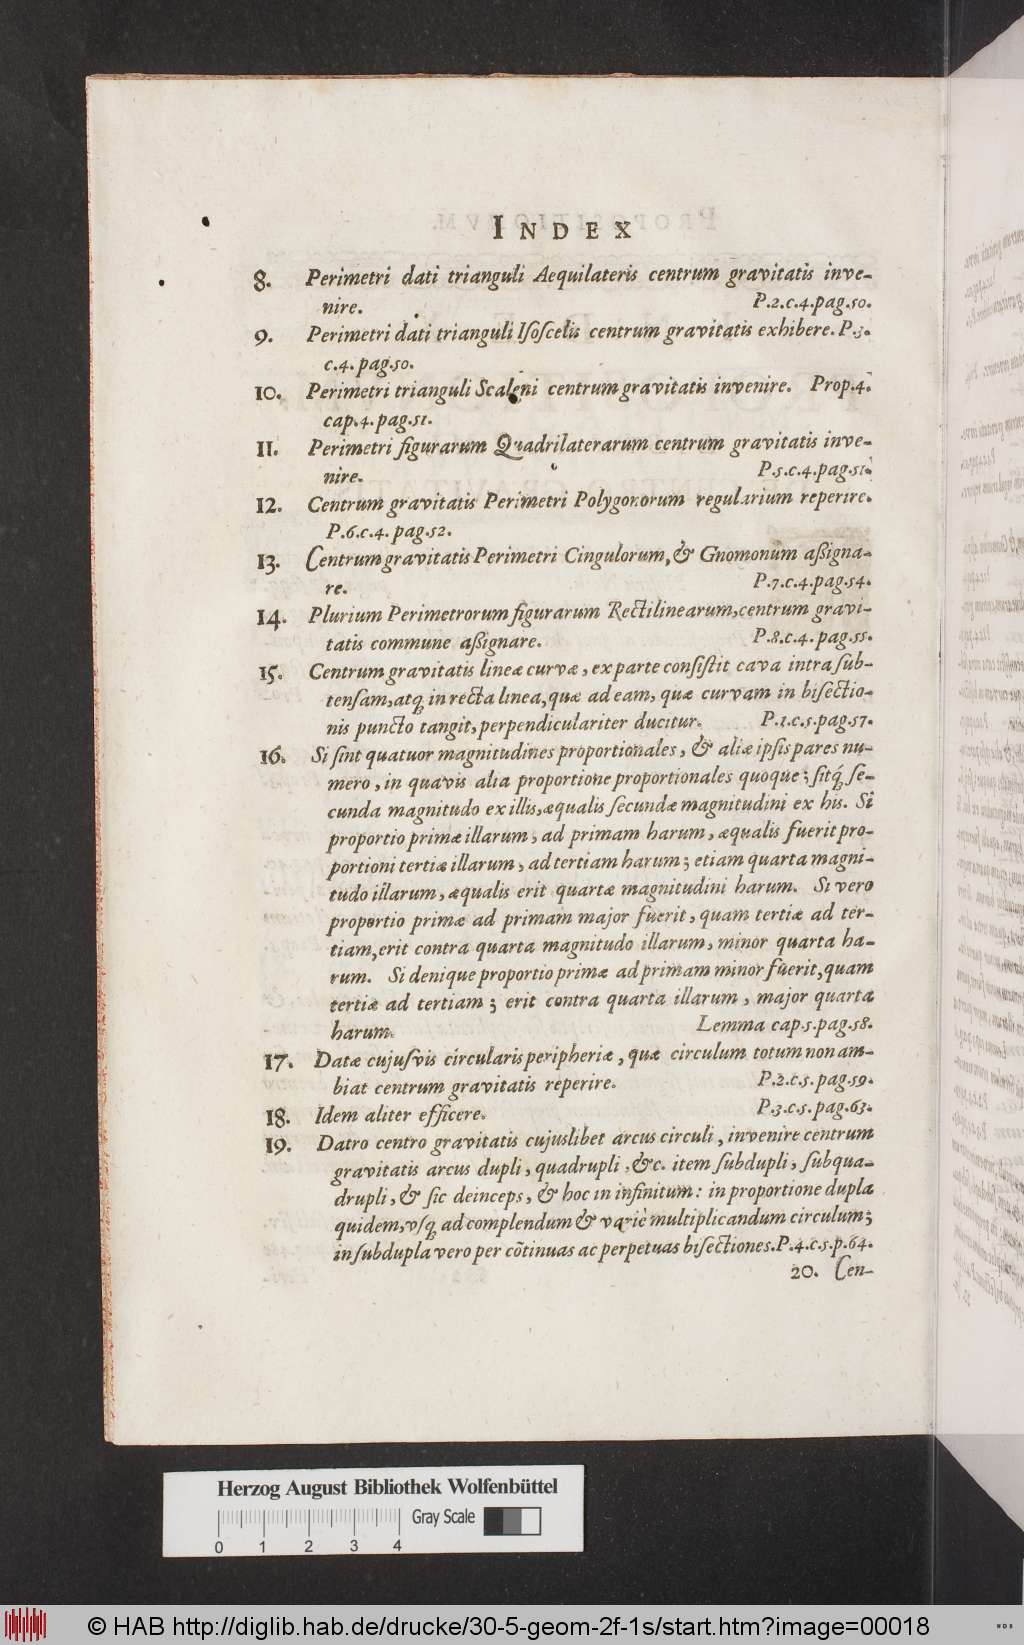 INDEX
8. Perimetri dati trianguli Aequilateris centrum gravitatis inve-
nire. P.2.c.4.pag.50.
9. Perimetri dati trianguli Iſoſcelis centrum gravitatis exhibere. P.3.
c.4. pag.50.
10. Perimetri trianguli Scaleni centrum gravitatis invenire. Prop.4.
cap.4.pag.51.
11. Perimetri figurarum Quadrilaterarum centrum gravitatis inve-
nire. P.5.c.4.pag.51.
12. Centrum gravitatis Perimetri Polygonorum regularium reperire.
P.6.c.4. pag.52.
13. Centrum gravitatis Perimetri Cingulorum, & Gnomonum aßigna-
re. P.7.c.4.pag.54.
14. Plurium Perimetrorum figurarum Rectilinearum, centrum gravi-
tatis commune aßignare. P.8.c.4.pag.55.
15. Centrum gravitatis lineæ curvæ, ex parte conſiſtit cava intra ſub-
tenſam, atq; in recta linea, quæ ad eam, quæ curvam in biſectio-
nis puncto tangit, perpendiculariter ducitur. P.1.c.5.pag.57.
16. Si ſint quatuor magnitudines proportionales, & aliæ ipſis pares nu-
mero, in quavis alia proportione proportionales quoque; ſitq́; ſe-
cunda magnitudo ex illis, æqualis ſecundæ magnitudini ex his. Si
proportio primæ illarum, ad primam harum, æqualis fuerit pro-
portioni tertiæ illarum, ad tertiam harum; etiam quarta magni-
tudo illarum, æqualis erit quartæ magnitudini harum. Si vero
proportio primæ ad primam major fuerit, quam tertiæ ad ter-
tiam, erit contra quarta magnitudo illarum, minor quarta ha-
rum. Si denique proportio primæ ad primam minor fuerit, quam
tertiæ ad tertiam; erit contra quarta illarum, major quarta
harum. Lemma cap.5.pag.58.
17. Datæ cujuſvis circularis peripheriæ, quæ circulum totum non am-
biat centrum gravitatis reperire. P.2.c.5.pag.59.
18. Idem aliter efficere. P.3.c.5.pag.63.
19. Datro centro gravitatis cujuslibet arcus circuli, invenire centrum
gravitatis arcus dupli, quadrupli, &c. item ſubdupli, ſubqua-
drupli, & ſic deinceps, & hoc in infinitum: in proportione dupla
quidem, vſq; ad complendum & variè multiplicandum circulum;
in ſubdupla vero per cõtinuas ac perpetuas biſectiones. P.4.c.5.p.64.
20. Cen-
Herzog August Bibliothek Wolfenbüttel
0 1 2 3 4 Gray Scale
© HAB http://diglib.hab.de/drucke/30-5-geom-2f-1s/start.htm?image=00018